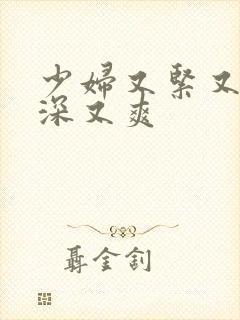 少婦又緊又
深又爽
聶金釗